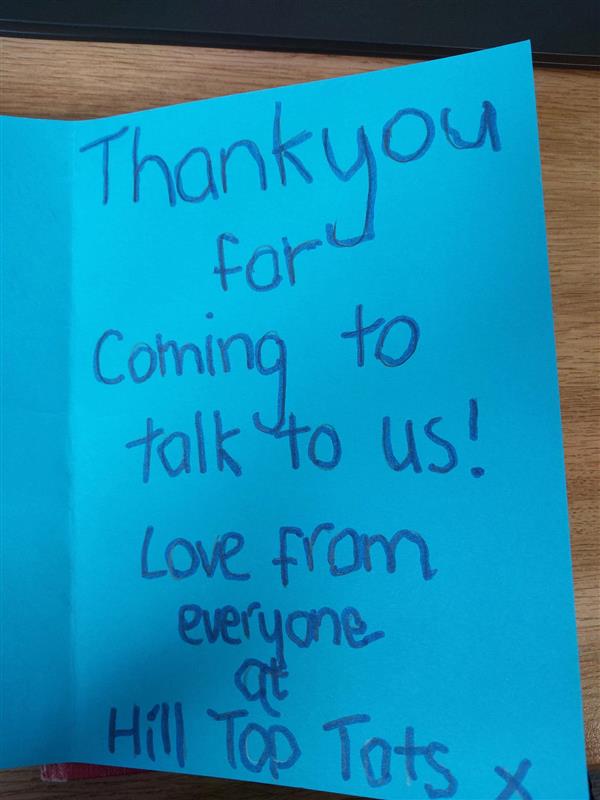 Thankyou
for
Coming to
talk to us!
Love from
everyone
at
Hill Top Tots x